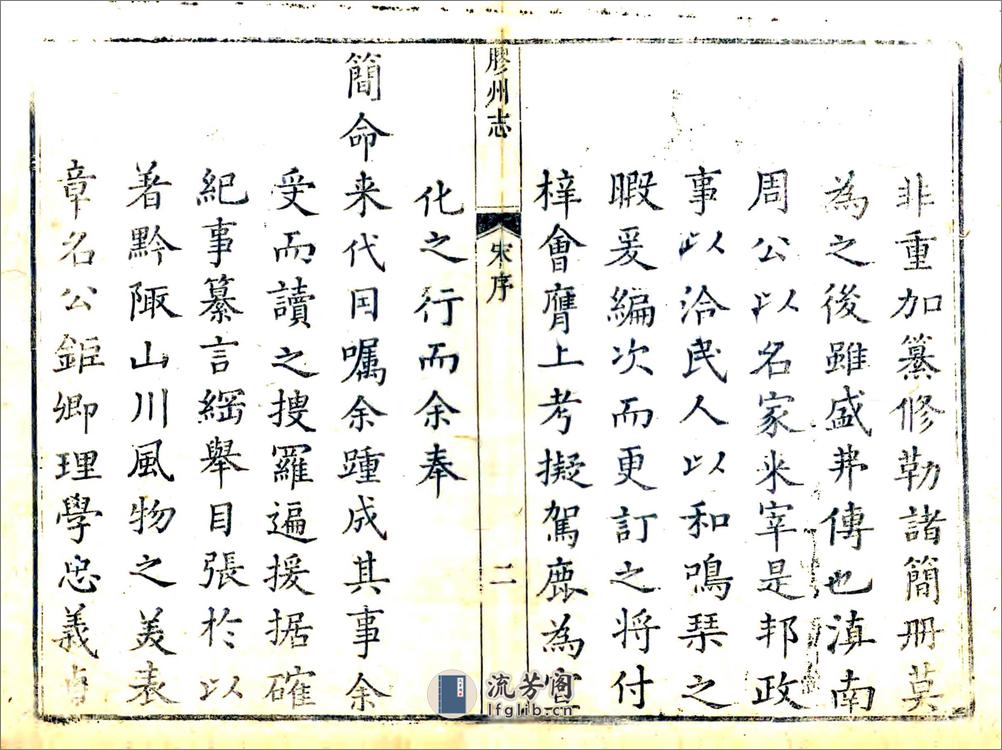 非重加纂修勒諸簡冊莫
為之後雖盛弗傳也滇南
周公以名家米宰是邦政
事以洽民人以和鳴琴之
暇爰編次而更訂之將付
梓會膺上考擬駕鹿為
膠州志
宋序
二
化之行而余奉
簡命来代因囑余踵成其事余
受而讀之捜羅遍援据確
紀事纂言綱舉目張於以
著黔陬山川風物之美表
章名公鉅卿理學忠義
流芳阁
lfglib.cn